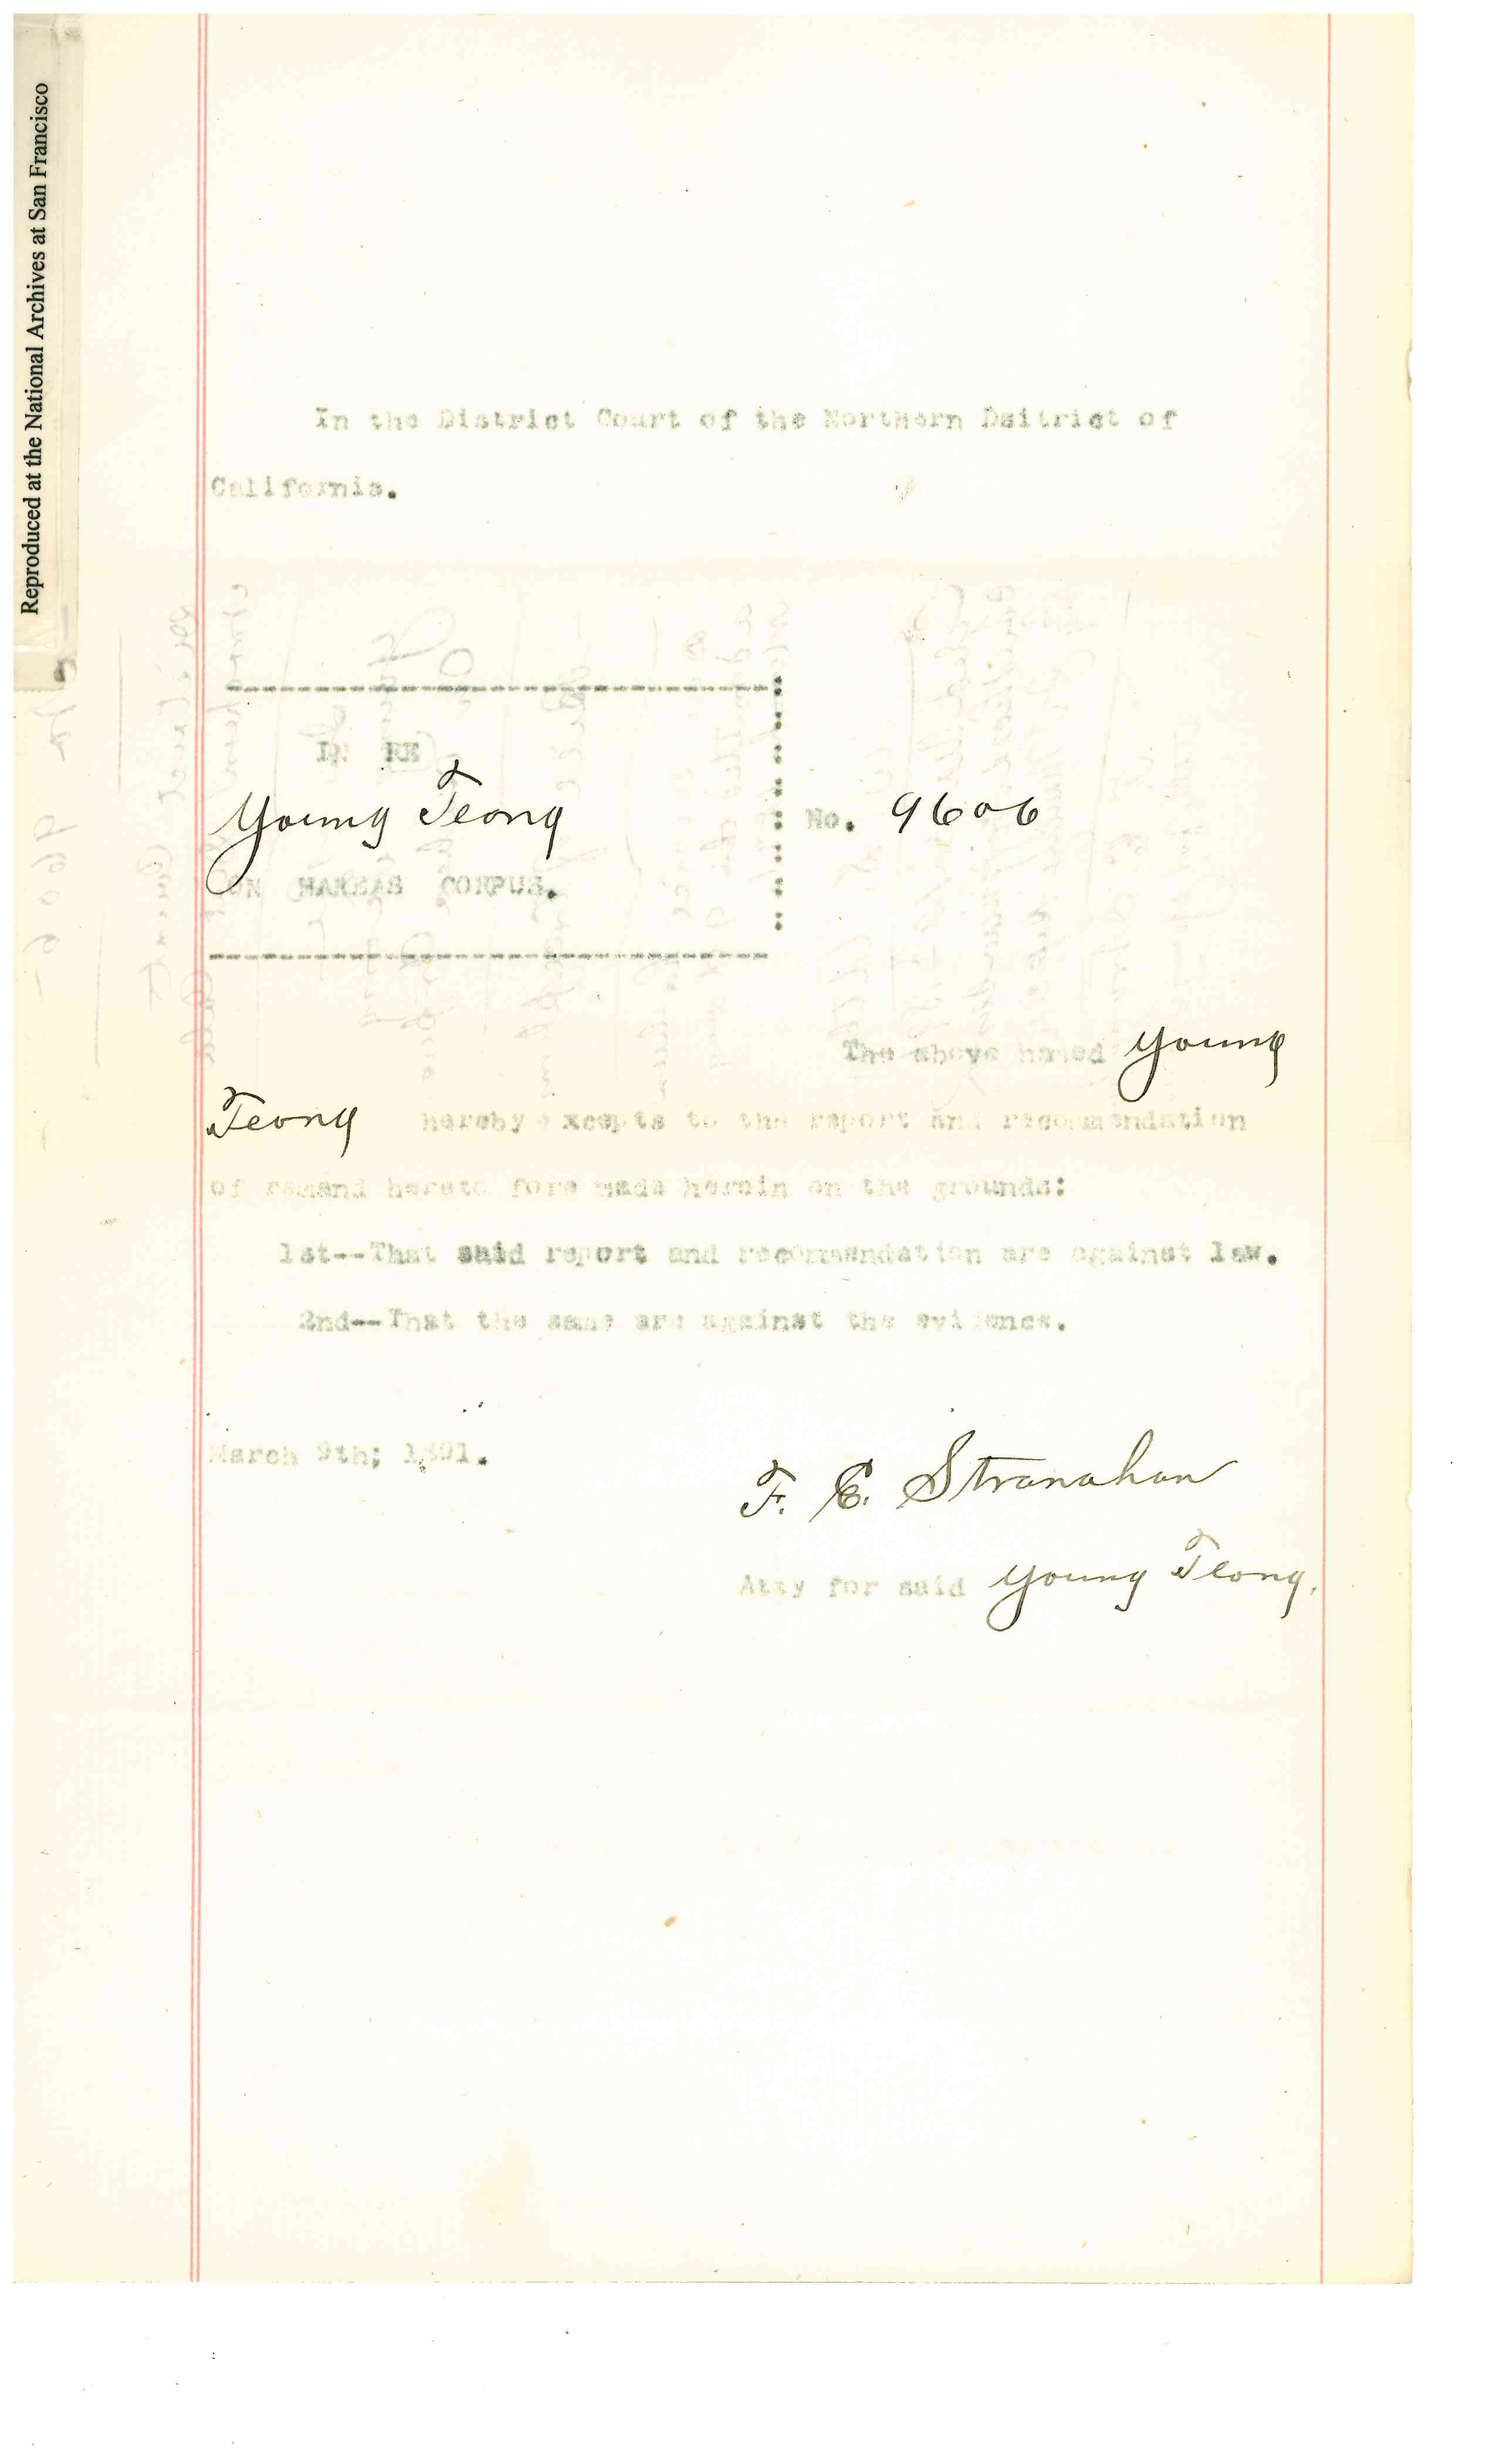 Reproduced at the National Archives at San Francisco
In the District Court of the Northern Dsitrict of
California.
IN RE
Young Teong
No. 9606
ON HABEAS CORPUS.
The above named Young
Teong hereby excepts to the report and recommendation
of remand hereto fore made herein on the grounds:
1st--That said report and recommendation are against law.
2nd--That the same are against the evidence.
March 9th; 1891.
F. E. Stranahan
Atty for said Young Teong.